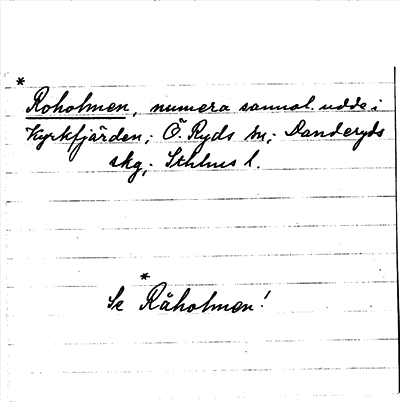 *
Roholmen, numera sannol. udde i
Kyrkfjärden; Ö. Ryds sn; Danderyds
skg; Sthlms l.
*
Se Råholmen!